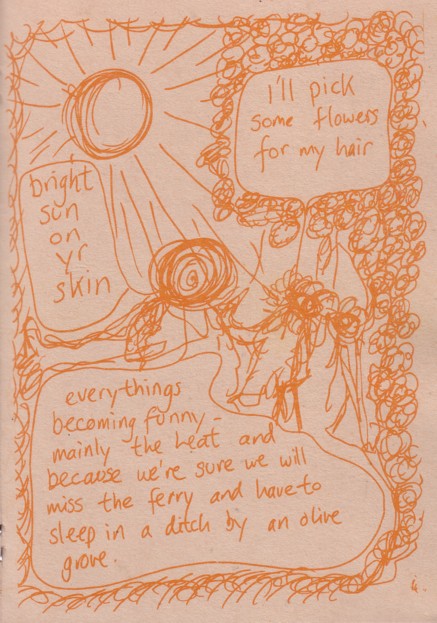 I'll pick
some flowers
for my hair
bright
sun
on
yr
skin
everythings
becoming funny -
mainly the heat and
because we're sure we will
miss the ferry and have to
sleep in a ditch by an olive
grove.